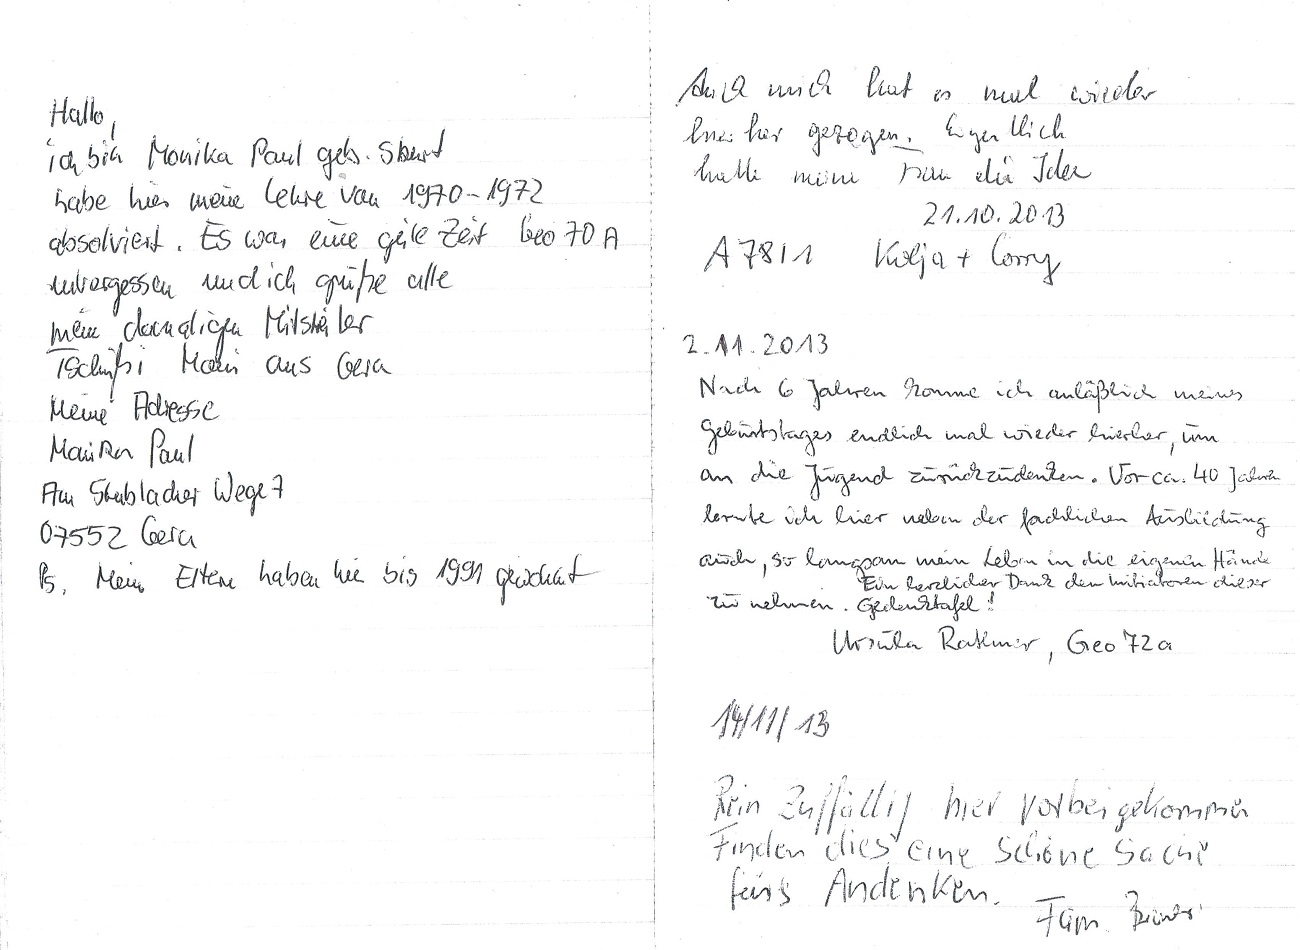 Hallo,
ich bin Monika Paul geb.
habe hier meine Lehre von 1970-1972
absolviert. Es war eine geile Zeit Geo 70 A
unvergessen und ich grüße alle
meine damaligen Mitschüler
Tschüßi Moni aus Gera
Meine Adresse
Monika Paul
Am Stublacher Wege 7
07552 Gera
Ps. Meine Eltern haben hie bis 1991 gewohnt
Auch mich hat es mal wieder
hier her gezogen. Eigentlich
hatte meine Frau die Idee
21.10.2013
A7811 Kolja + Conny
2.11.2013
Nach 6 Jahren komme ich anläßlich meines
Geburtstages endlich mal wieder hierher, um
an die Jugend zurückzudenken. Vor ca. 40 Jahren
lernte ich hier neben der fachlichen Ausbildung
auch, so langsam mein Leben in die eigenen Hände
zu nehmen. Ein herzlicher Dank den Initiatoren dieser
Gedenktafel!
Ursula, Geo 72a
14/11/13
Rein Zuffällig hier vorbeigekommen
Finden dies eine schöne Sache
fürs Andenken.
Fam.